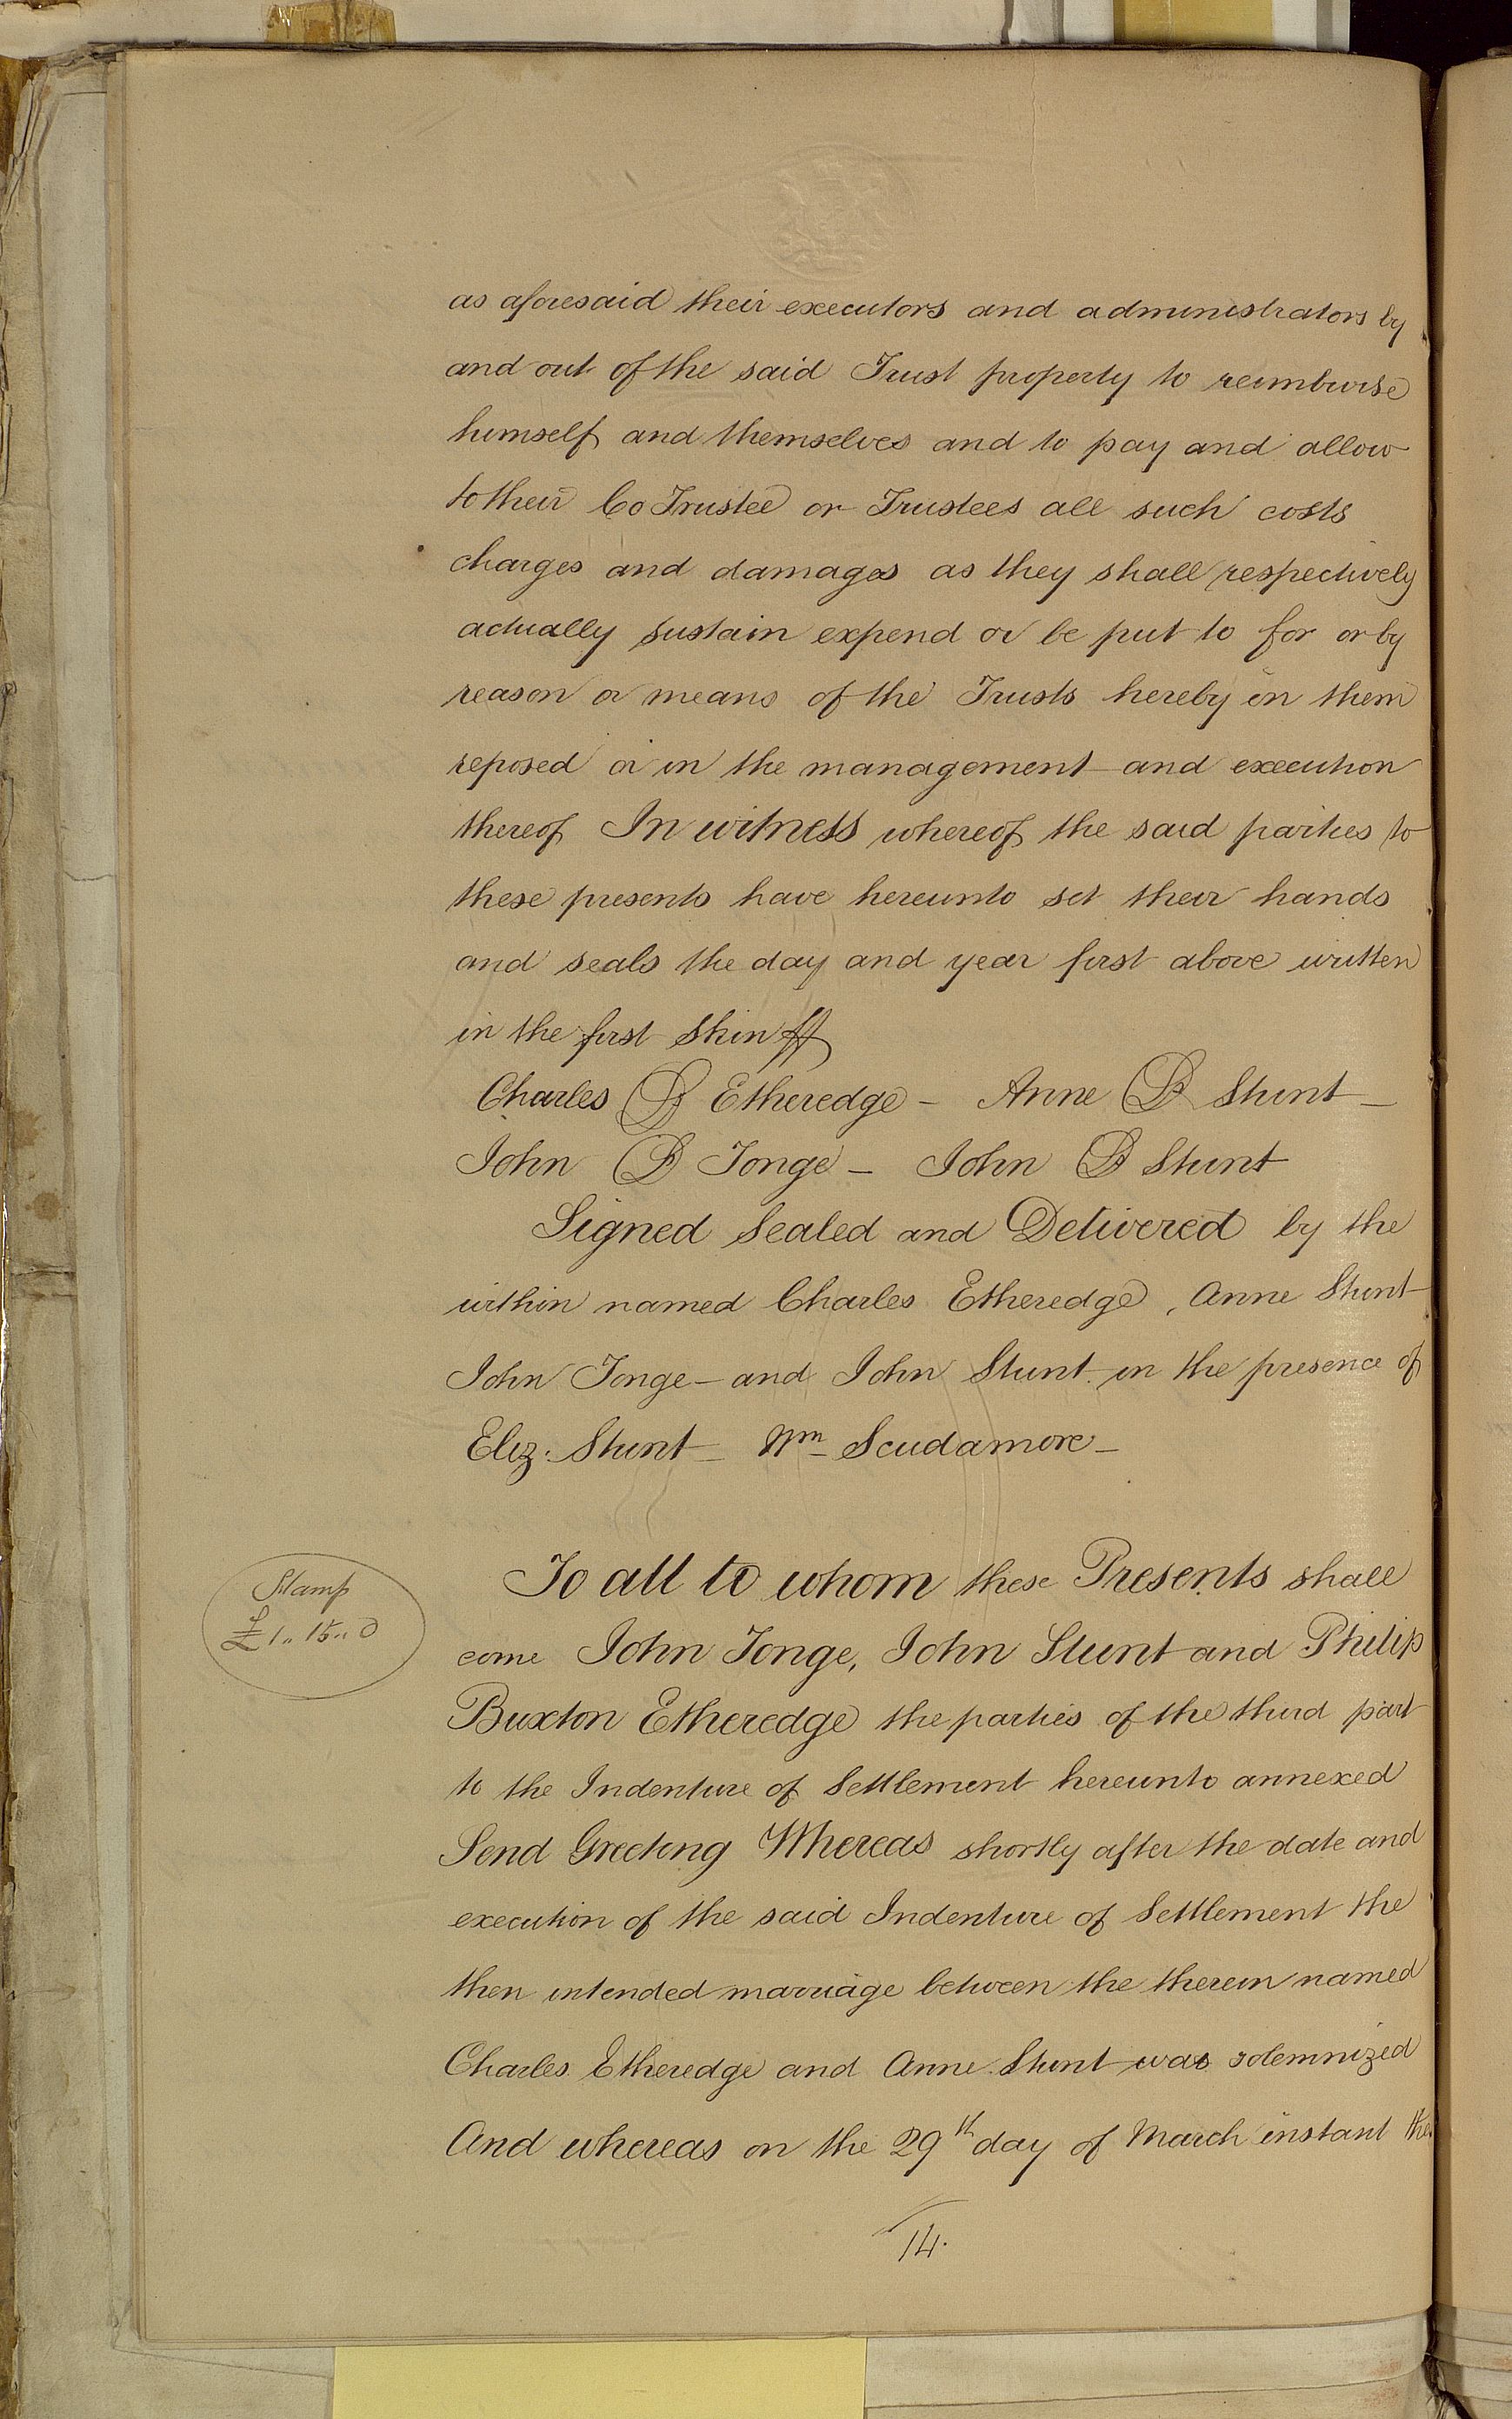 as aforesaid their executors and administrators by
and out of the said Trust property to reimburse
himself and themselves and to pay and allow
to their Co Trustee or Trustees all such costs
charges and damages as they shall respectively
actually sustain expend or be put to for or by
reason or means of the Trusts hereby in them
reposed or in the management and execution
thereof In witness whereof the said parties to
these presents have hereunto set their hands
and seals the day and year first above written
in the first Skin
Charles Etheredge - Anne Stunt -
John Tonge - John Stunt
Signed Sealed and Delivered by the
within named Charles Etheredge, Anne Stunt
John Tonge - and John Stunt in the presence of
Eliz. Stunt - Wm Scudamore -
Stamp
£1.. 15.. 0
To all to whom these Presents shall
come John Tonge, John Stunt and Philip
Buxton Etheredge the parties of the third part
to the Indenture of Settlement hereunto annexed
Send Greeting Whereas shortly after the date and
execution of the said Indenture of Settlement the
then intended marriage between the therein named
Charles Etheredge and Anne Stunt was solemnized
And whereas on the 29th day of March instant the
14.